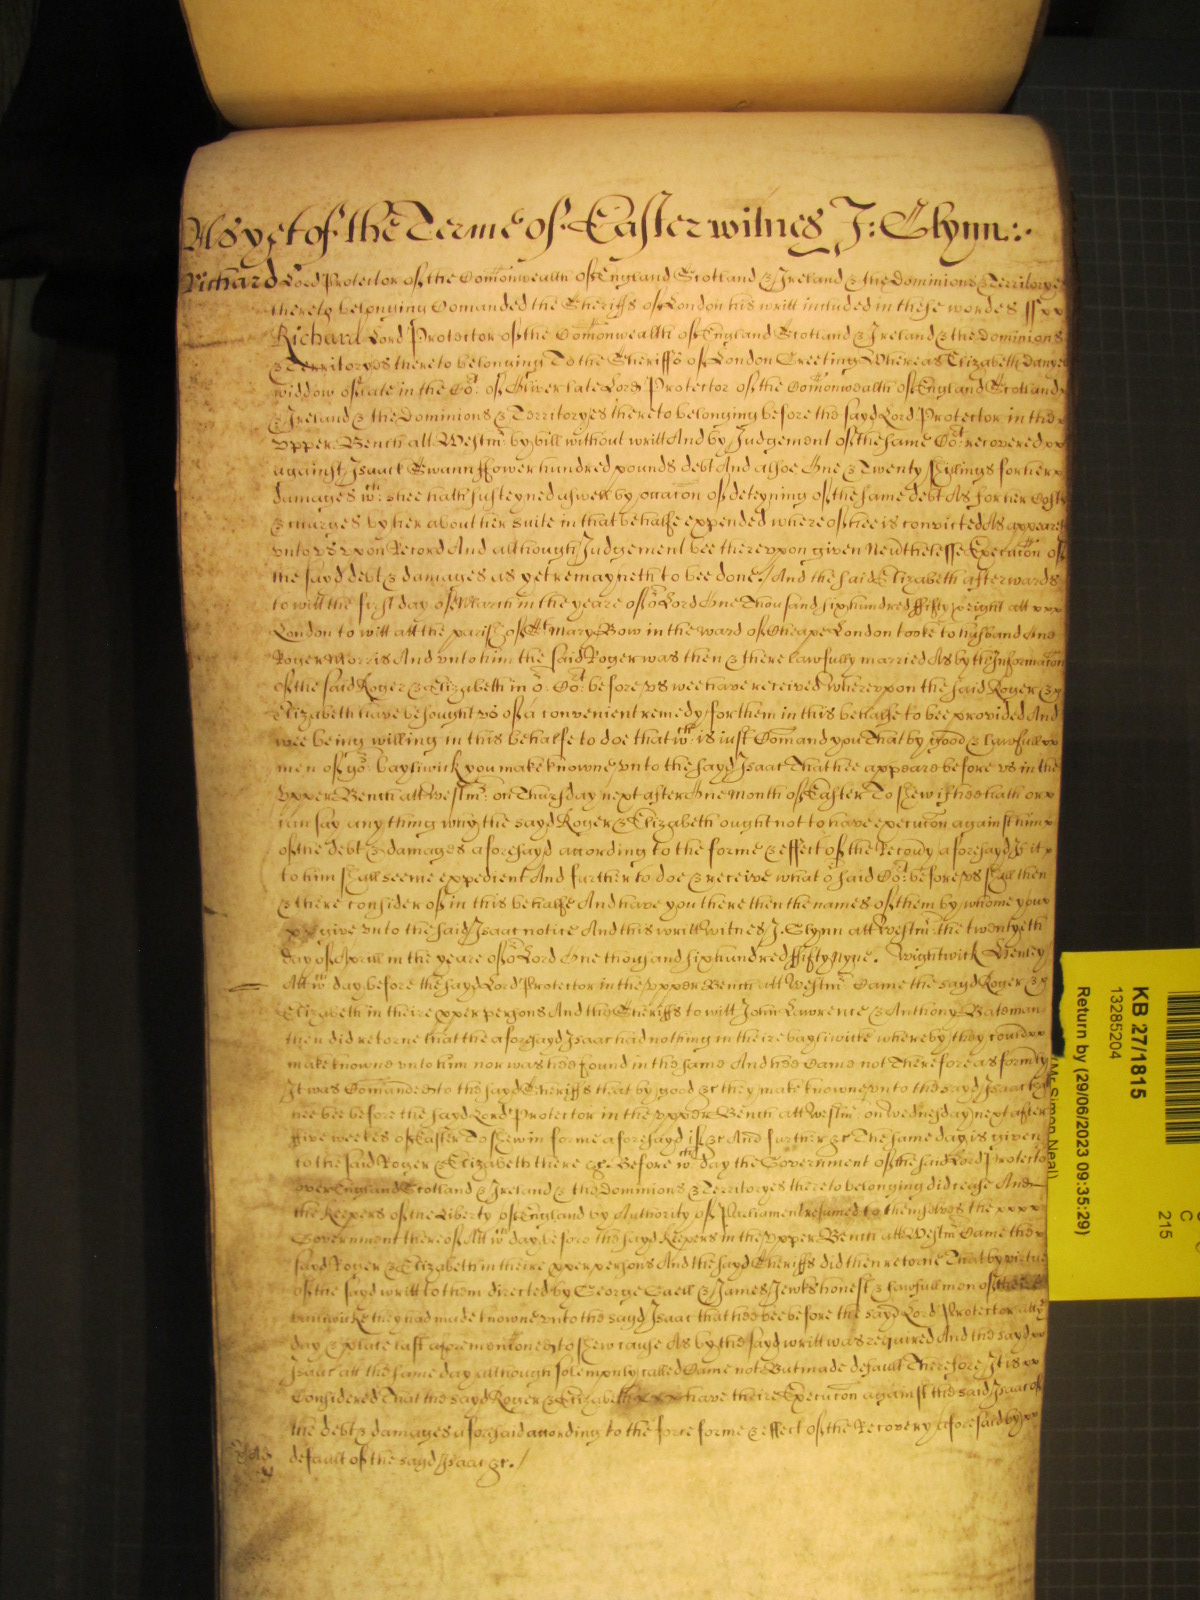 As yet of the Terme of Easter witnes J: Glynn
Richard Lord Protector of the Comonwealth of England Scotland & Ireland & the Dominions & Territoryes
thereto belonging Comanded the Sheriffs of London his writt included in these wordes ss xx
Richard Lord Protector of the Comonwealth of England Scotland & Ireland & the Dominions
& Territoryes thereto belonging To the Sheriffs of London Greeting Whereas Elizabeth
widdow of late in the Cot: of Oliver late Lord Protector of the Comonwealth of England Scotland
& Ireland & the Dominions & Territoryes thereto belonging before the sayd Lord Protector in the x
Vpper Bench att Westmr by bill without writt And by Judgement of the same Cot: recovered xx
against Isaack Ewann ffower hundred pounds debt And alsoe One & Twenty shillings for her x
damages wch: shee hath susteyned aswell by occacon of deteyning of the same debt As for her Costs
& charges by her about her suite in that behalfe expended whereof hee is convicted As appeareth
vnto vs vpon Record And although Judgement bee therevpon given Nevthelesse Execucon of
the sayd debt & damages as yet remayneth to bee done / And the said Elizabeth afterwards
to witt the first day of March in the yeare of or Lord One Thousand six hundred ffifty & eight att xxx
London to witt att the parish of St Mary Bow in the ward of Cheape London tooke to husband One
Roger Morris And vnto him the said Roger was then & there lawfully married As by the Informacon
of the said Roger & Elizabeth in or: Cot: before vs wee have received wherevpon the said Roger &
Elizabeth have besought vs of a convenient remedy for them in this behalfe to bee provided And
wee being willing in this behalfe to doe that wch: is iust Comand you That by good & lawfull xx
men of yor: bayliwick you make knowne vnto the sayd Isaac That hee appeare before vs in the
Vpper Bench att Westmr: on Thursday next after One Month of Easter To shew if hee hath or x
can say any thing why the sayd Roger & Elizabeth ought not to have execucon against him x
of the debt & damages aforesayd according to the forme & effect of the Recovy aforesayd If it x
to him shall seeme expedient And further to doe & receive what or said Cot: before vs shall then
& there consider of in this behalfe And have you there then the names of them by whome you x
xx give vnto the said Isaac notice And this writt Witnes J. Glynn att Westmr the twentyeth
day of Aprill in the yeare of or Lord One thousand six hundred ffifty nyne. Wightwick Henley
Att wch day before the sayd Lord Protector in the vpper Bench att Westmr Came the sayd Roger &
Elizabeth in theire pper persons And the Sheriffs to witt John Lawrence & Anthony Bateman
then did retorne that the aforesayd Isaac had nothing in theire bayliwicke whereby they could xx
make knowne vnto him nor was hee found in the same And hee Came not Therefore as formly
It was Comanded to the sayd Sheriffs that by good &c they make knowne vnto the sayd Isaac
hee bee before the sayd Lord Protector in the vpper Bench att Westmr on wednesday next after
ffive weekes of Easter To shew in forme aforesayd if &c And further &c The same day is given
to the said Roger & Elizabeth there &c Before wch day the Government of the said Lord Protector
over England Scotland & Ireland & the Dominions & Territoryes thereto belonging did cease And
the Keepers of the Liberty of England by Authority of Parliament resumed to themselves the xxxx
Government thereof Att wch day before the sayd Keepers in the vpper Bench att Westmr Came the x
sayd Roger & Elizabeth in theire pper persons And the sayd Sheriffs did then retorne That by virtue
of the sayd writt to them directed by George Gaell & James Jewks honest & lawfull men of theire
bailiwicke they had made knowne vnto the sayd Isaac that hee bee before the sayd Lord Protector att
day & place last aforemenconed to shew cause As by the sayd writt was required And the sayd xx
Isaac att the same day although solempnly called Came not But made default Therefore It is xx
Considered That the sayd Roger & Elizabeth xxx have theire Execucon against the said Isaac of
the debt & damages aforesaid according to the force forme & effect of the Recovery aforesaid by xx
default of the sayd Isaac &c. /
KB 27/1815
13285204
Return by (29/06/2023 09:35:29)
(Mr Simon Neal)
215
C